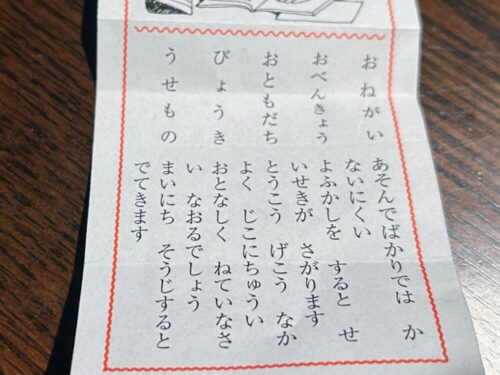 おねがい
あそんでばかりでは か
ないにくい
おべんきょう
よふかしを すると せ
いせきが さがります
おともだち
とうこう げこう なか
よく じこにちゅうい
びょうき
おとなしく ねていなさ
い なおるでしょう
うせもの
まいにち そうじすると
でてきます